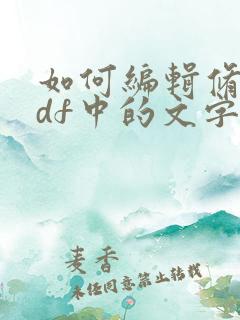 如何编辑修
df中的文字
麦香
未经同意禁止转载